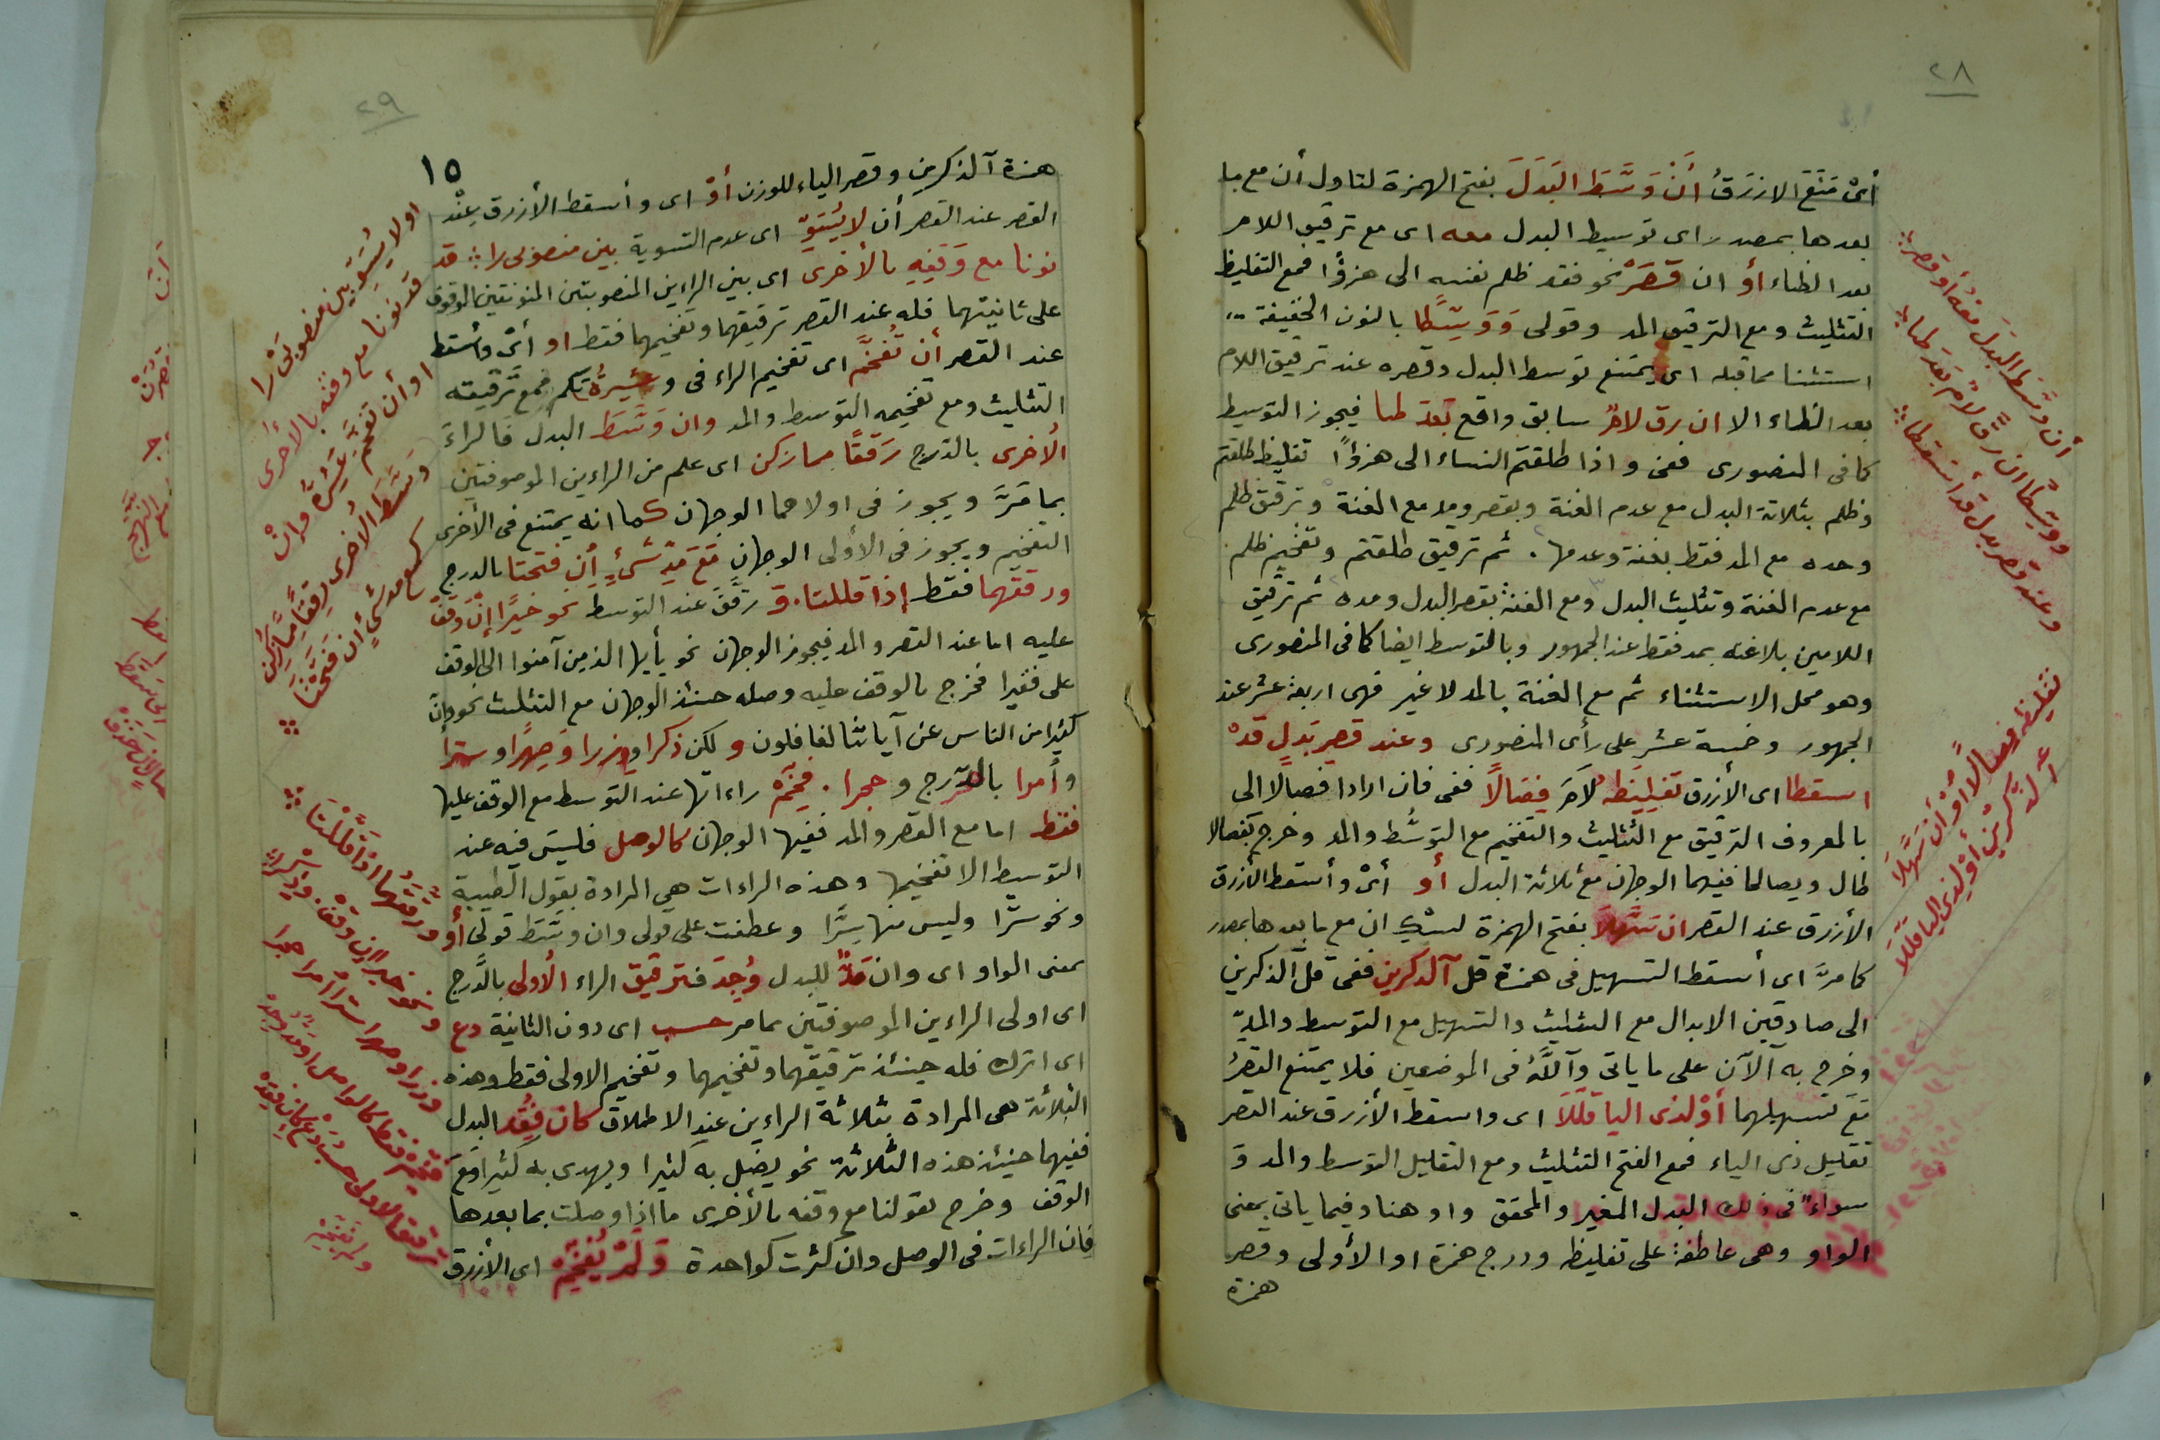 ٢٨
أىْ مَنَعَ الازرَقُ أَنْ وَسَّطَ البَدَلَ بفتح الهمزة لتاول أن مع ما
بعدها بمصدر اى توسيط البدل معه اى مع ترقيق اللام
بعد الظاء أو ان قَصَرْ نحو فقد ظلم نفسه الى هزؤًا فمع التغليظ
التثليث ومع الترقيق المد وقولى وَوَسِّطًا بالنون الخفيفة
استثنا مما قبله اى يمتنع توسط البدل وقصره عند ترقيق اللام
بعد الظاء الا ان رق لامٌ سابق واقع بَعدَ طا فيجوز التوسيط
كما فى المنصورى ففى واذا طلقتم النساء الى هزؤًا تغليظ طلقتم
وظلم بثلاثة البدل مع عدم الغنة وبقصر ومد مع الغنة وترقيق ظلم
وحده مع المد فقط بغنة وعدمها . ثم ترقيق طلقتم وتفخيم ظلم
مع عدم الغنة وتثليث البدل ومع الغنة بقصر البدل ومده ثم ترقيق
اللامين بلا غنه بمد فقط عند الجمهور وبالتوسط ايضا كما فى المنصورى
وهو محل الاستثناء ثم مع الغنة بالمد لا غير فهى اربعة عشر عند
الجمهور وخمسة عشر على رأى المنصورى وعند قصرِ بَدلٍ قدْ
اسقطا اى الأزرق تغليظَه لَامَ فِصَالاً ففى فان ارادا فصالا الى
بالمعروف الترقيق مع التثليث والتفخيم مع التوسُّط والمد وخرج بفصالا
طال ويصالحا ففيهما الوجهان مع ثلاثة البدل أو أىْ وأسقط الأزرق
الأزرق عند القصر ان سَهَّلاَ بفتح الهمزة لسبك ان مع ما بعدها بمصدر
كما مرَّ اى أسقط التسهيل فى همزة قل آلذكرين ففى قل آلذكرين
الى صادقين الابدال مع التثليث والتسهيل مع التوسط والمدّ
وخرج به آلآن على ما ياتى وآللَّهُ فى الموضعين فلا يمتنع القصرُ
مَعَ تسهيلهما أوْ لذى اليا قَلَّلاَ اى واسقط الأزرق عند القصر
تقليل ذى الياء فمع الفتح التثليث ومع التقليل التوسط والمد وَ
سواءٌ فى ذلك البدل المغير والمحقق واو هنا وفيما ياتى بمعنى
الواو وهى عاطفة على تغليظ ودرج همزة او الأولى وقصر
همزة
أن وسَّطَ البَدَلَ مَعْهُ أو قَصَرْ
ووسِّطًا ان رقَّ لامٌ بَعدَ طا
وعند قصرِ بدل قد أسقطا
تغليظه فصالاً أوْ أن سَهَّلاَ
ءآلذَّكَرَيْنِ أوْ لذى اليا قَلَّلاَ
٢٩
١٥
همزة آلذكرين وقصر الياء للوزن أوْ اى وأسقط الأزرق عِنْد
القصر عند القصر أن لا يُسَوِّ اى عدم التسوية بين منصوبى را قد
نونا مع وَقْفِهِ بالأخرى اى بين الراءين المنصوبتين المنونتين الموقوف
على ثانيتهما فله عند القصر ترقيقهما وتفخيمهما فقط او أىْ وأسقط
عند القصر أن تُفَخَّم اى تفخيم الراء فى وعشيرتُكم فمع ترقيقه
التثليث ومع تفخيمه التوسط والمد وان وَسَّطَ البدل فالراءَ
الأخرى بالدرج رَقِّقًا مما زكن اى علم من الراءين الموصوفتين
بما مَرَّ ويجوز فى اولاهما الوجهان كما انه يمتنع فى الأخرى
التفخيم ويجوز فى الأولى الوجهان مَعَ مَدِّ شىءٍ أِن فتحتا بالدرج
ورققهما فقط إذا قللتا. وَ رقِّقَ عند التوسط نحو خيرًا إنْ وَقَفْ
عليه اما عند القصر والمد فيجوز الوجهان نحو يأيها الذين آمنوا الى الوقف
على فقيرا فخرج بالوقف عليه وصله حينئذ الوجهان مع التثليث نحو وإن
كثيرا من الناس عن آياتنا لغافلون ولكن ذكرا وِزرا وَصِهرًا وسترا
وأمرا بالدَّرج وحجرا . فَخِّمْ راءاتها عند التوسط مع الوقف عليها
فقط اما مع القصر والمد ففيها الوجهان كالوصل فليس فيه عند
التوسيط الا تفخيمها وهذه الراءات هى المرادة بقول الطيبة
ونحو سترًا وليس منها سِرًّا وعطفت على قولى وان وسَّطَ قولى أو
بمعنى الواو اى وان مَدٌّ للبدل وُجِدَ فترقيق الراء الأولى بالدَّرج
اى اولى الراءين الموصوفتين بما مر حسب اى دون الثانية دع
اى اترك فله حينئذ ترقيقهما وتفخيمهما وتفخيم الاولى فقط وهذه
الثلاثة هى المرادة بثلاثة الراءين عند الاطلاق كان فُقِد البدل
ففيهما حينئذ هذه الثلاثة نحو يضل به كثيرا ويهدى به كثيرا مَعَ
الوقف وخرج بقولنا مع وقفه بالأخرى ما اذا وصلت بما بعدها
فان الراءات فى الوصل وان كثرت كواحدة وَلَمْ يُفَخِّمْ اى الأزرق
او لا يُسَوِّ بين منصوبَىْ را
قد نونا مع وقفه بالأُخرى
او أن تفخَّم عَشِيْرَةٌ وإنْ
وَسَّطَ الأُخرى رققًا مما زُكِنْ
مع مد شىءٍ أن فَتَحْتَا
ورَقِّقَهُما إذَا قَلَّلْتَا
ونحو خيرًا إن وقَفْ. وذكرا
وزرا وصهرا سترا أمرا حجرا
فخِّمْ فقط كالوصل او مدٌّ وُجِدْ
ترقيق الاولى حسبُ دَع كان فُقِدْ